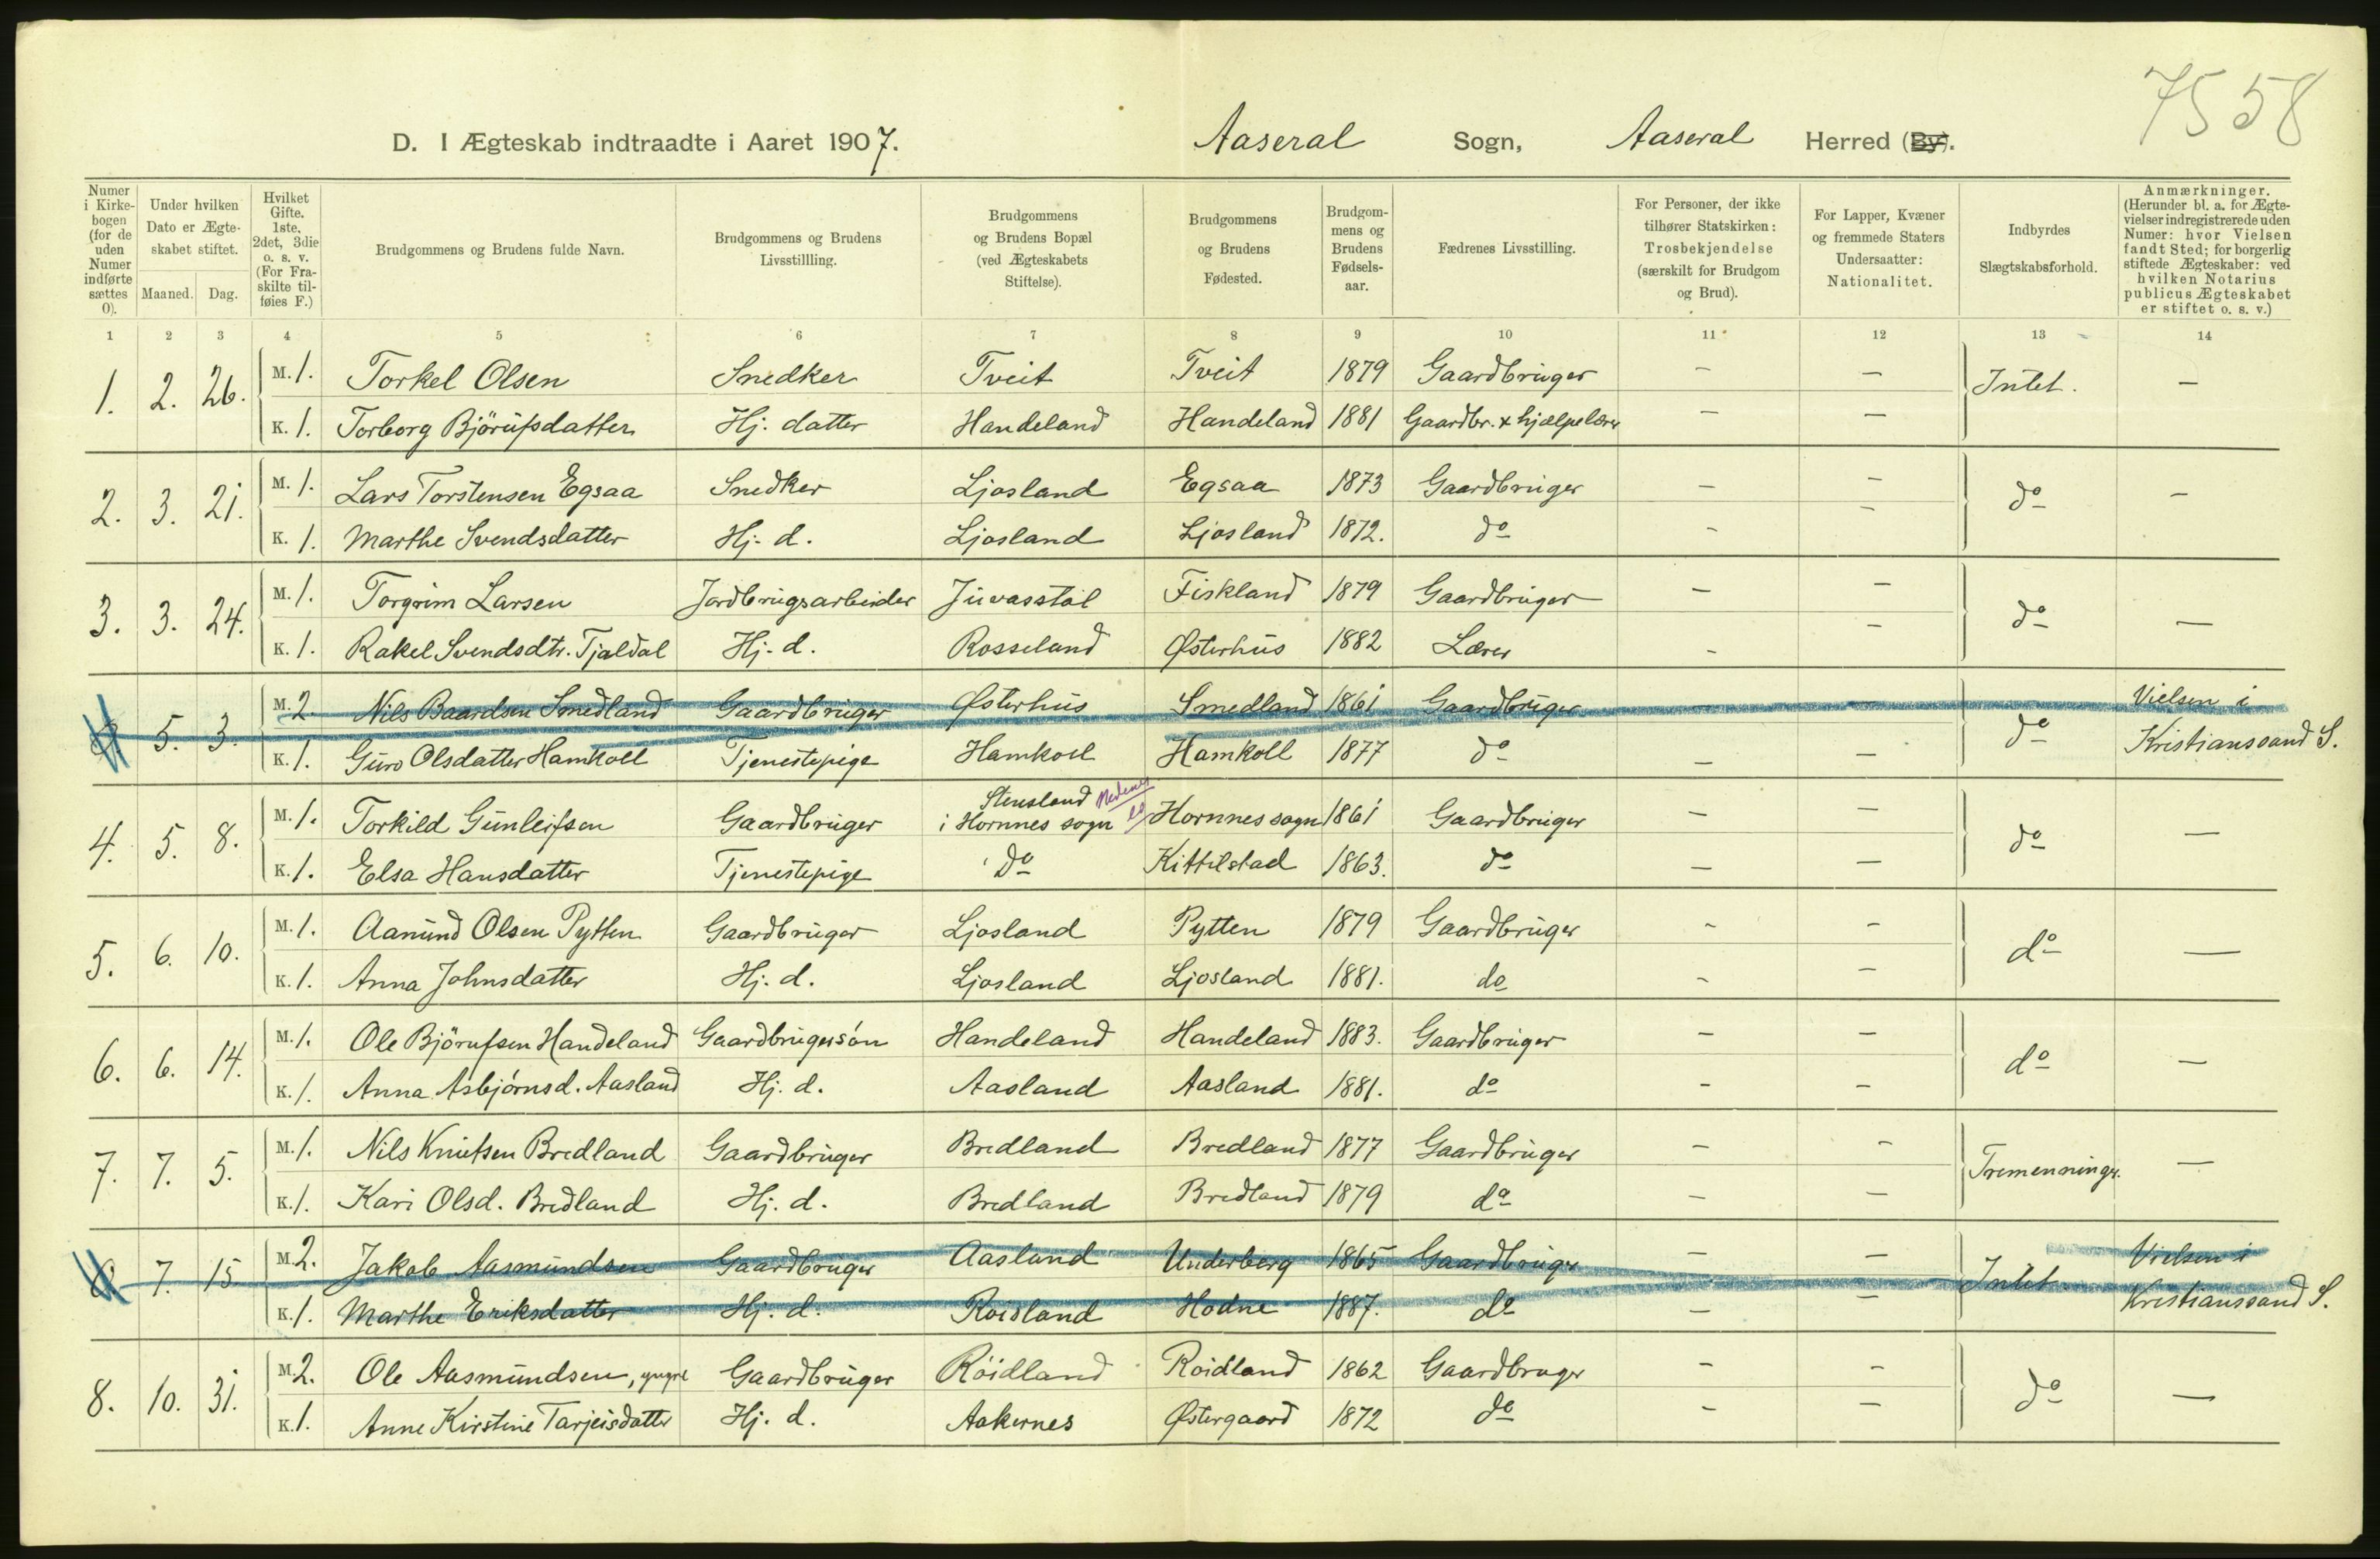 7558
D. I Ægteskab indtraadte i Aaret 1907. Aaseral Sogn, Aaseral Herred (By).
Numer i Kirke-bogen (for de uden Numer indførte sættes 0).
Under hvilken Dato er Ægte-skabet stiftet.
Maaned. Dag.
Hvilket Gifte. 1ste, 2det, 3die o. s. v. (For Fra-skilte til-føies F.)
Brudgommens og Brudens fulde Navn.
Brudgommens og Brudens Livsstillling.
Brudgommens og Brudens Bopæl (ved Ægteskabets Stiftelse).
Brudgommens og Brudens Fødested.
Brudgom-mens og Brudens Fødsels-aar.
Fædrenes Livsstilling.
For Personer, der ikke tilhører Statskirken: Trosbekjendelse (særskilt for Brudgom og Brud).
For Lapper, Kvæner og fremmede Staters Undersaatter: Nationalitet.
Indbyrdes Slægtskabsforhold.
Anmærkninger. (Herunder bl. a. for Ægte-vielser indregistrerede uden Numer: hvor Vielsen fandt Sted; for borgerlig stiftede Ægteskaber: ved hvilken Notarius publicus Ægteskabet er stiftet o. s. v.)
1 2 3 4 5 6 7 8 9 10 11 12 13 14
1. 2. 26. M. 1. Torkel Olsen Snedker Tveit Tveit 1879 Gaardbruger — — Intet. —
K. 1. Torborg Bjørufsdatter Hj. datter Handeland Handeland 1881 Gaardbr. & hjælpelærer — —
2. 3. 21. M. 1. Lars Torstensen Egsaa Snedker Ljosland Egsaa 1873 Gaardbruger — — do —
K. 1. Marthe Svendsdatter Hj. d. Ljosland Ljosland 1872. do - —
3. 3. 24. M. 1. Torgrim Larsen Jordbrugsarbeider Juvasstøl Fiskland 1879 Gaardbruger — — do —
K. 1. Rakel Svendsdtr. Tjaldal Hj. d. Rosseland Østerhus 1882 Lærer - —
5. 3. M. 2. Nils Baardsen Smedland Gaardbruger Østerhus Smedland 1861 Gaardbruger — — do Vielsen i
K. 1. Guro Olsdatter Hamkoll Tjenestepige Hamkoll Hamkoll 1877 do — — Kristianssand S.
Stensland Nedenes
4. 5. 8. M. 1. Torkild Gunleifsen Gaardbruger i Hornnes sogn Hornnes sogn 1861 Gaardbruger — — do —
K. 1. Elsa Hansdatter Tjenestepige do Kittilstad 1863. do — —
5. 6. 10. M. 1. Aanund Olsen Pytten Gaardbruger Ljosland Pytten 1879 Gaardbruger - - do —
K. 1. Anna Johnsdatter Hj. d. Ljosland Ljosland 1881. do - —
6. 6. 14. M. 1. Ole Bjørufsen Handeland Gaardbrugersøn Handeland Handeland 1883. Gaardbruger — — do —
K. 1. Anna Asbjørnsd. Aasland Hj. d. Aasland Aasland 1881. do - —
7. 7. 5. M. 1. Nils Knutsen Bredland Gaardbruger Bredland Bredland 1877 Gaardbruger — - Tremenninger. —
K. 1. Kari Olsd. Bredland Hj. d. Bredland Bredland 1879 do — —
7. 15 M. 2. Jakob Aasmundsen Gaardbruger Aasland Underberg 1865 Gaardbruger — — Intet Vielsen i
K. 1. Marthe Eriksdatter Hj. d. Roidland Hodne 1887. do — — Kristianssand S.
8. 10. 31. M. 2. Ole Aasmundsen, yngre Gaardbruger Röidland Roidland 1862 Gaardbruger — - do —
K. 1. Anne Kirstine Tarjeisdatter Hj. d. Aakernes Østergaard 1872 do - —